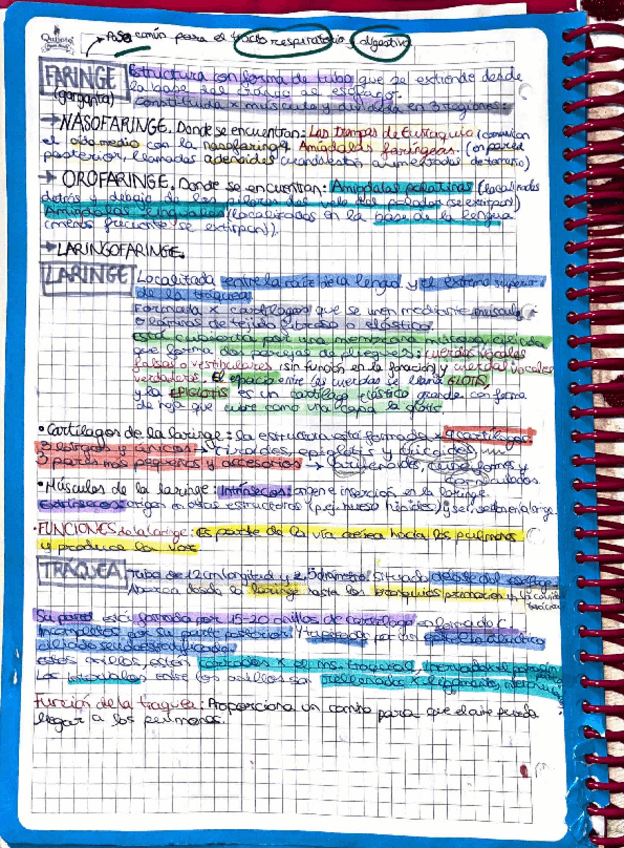 Paso común para el tracto respiratorio y digestivo
FARINGE Estructura con forma de tubo que se extiende desde
(garganta) la base del cráneo al esófago.
Constituida x músculo y dividida en 3 regiones:
→ NASOFARINGE. Donde se encuentran: Las trompas de Eustaquio (comunican
el oído medio con la nasofaringe). Amígdalas faríngeas. (en pared
posterior, llamadas adenoides cuando están aumentadas de tamaño)
→ OROFARINGE. Donde se encuentran: Amígdalas palatinas (localizadas
detrás y debajo de los pilares del velo del paladar (se extirpan))
Amígdalas linguales (localizadas en la base de la lengua
(menos frecuente se extirpan)).
→ LARINGOFARINGE.
LARINGE Localizada entre la raíz de la lengua y el extremo superior
de la tráquea
Formada x cartílagos que se unen mediante músculo
o láminas de tejido fibroso o elástico
Está cubierta por una membrana mucosa
que forma dos parejas de pliegues: cuerdas vocales
falsas o vestibulares (sin función en la fonación) y cuerdas vocales
verdaderas. El espacio entre las cuerdas se llama GLOTIS,
y la EPIGLOTIS es un cartílago elástico grande con forma
de hoja que cubre como una tapa la glotis.
• Cartílagos de la laringe: la estructura está formada x 9 cartílagos
3 largos y únicos → tiroides, epiglotis y cricoides
3 pares más pequeños y accesorios → aritenoides, cuneiformes y
corniculados.
• Músculos de la laringe: Intrínsecos: origen e inserción en la laringe.
Extrínsecos: origen en otras estructuras (p.ej. hueso hioides)
• FUNCIONES de la laringe: es parte de la vía aérea hacia los pulmones
y produce la voz
TRÁQUEA Tubo de 12cm longitud y 2,5 diámetro. Situado delante del esófago
Abarca desde la laringe hasta los bronquios primarios y la cavidad
torácica
Su pared está formada por 15-20 anillos de cartílago en forma de C
incompletos por su parte posterior y tapizada por un epitelio cilíndrico
ciliado seudoestratificado
estos anillos, están cerrados x el ms. traqueal
Los espacios entre los anillos son rellenados x ligamentos
Función de la tráquea: Proporciona un camino para que el aire pueda
llegar a los pulmones.